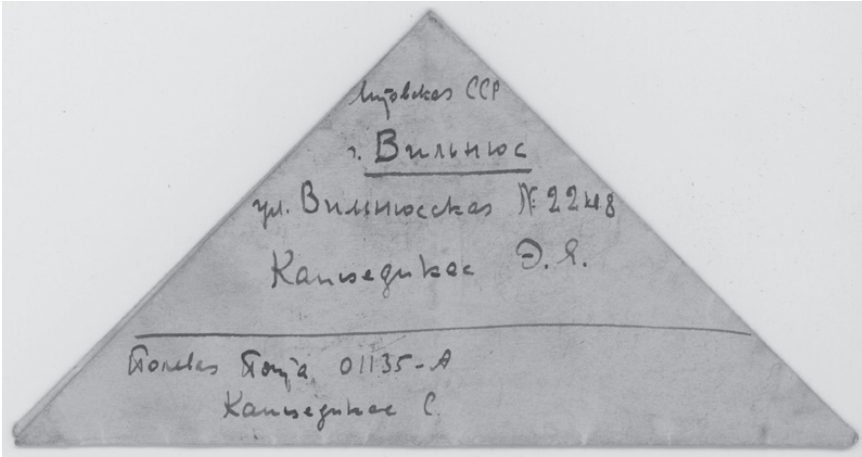 Литовская ССР
г. Вильнюс
ул. Вильнюсская № 22 48
Канцедикас Э. Я.
Полевая Почта 01135-А
Канцедикас С.